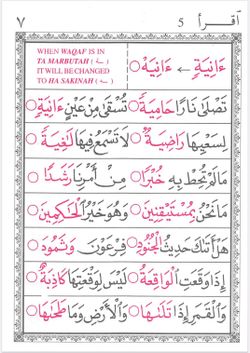 ٧ 5 اقرأ
WHEN WAQAF IS IN
TA MARBUTAH ( ـة )
IT WILL BE CHANGED
TO HA SAKINAH ( ـهْ )
ءَانِيَةٍ ← ءَانِيَهْ
تَصْلَىٰ نَارًا حَامِيَةً تُسْقَىٰ مِنْ عَيْنٍ ءَانِيَةٍ
لِسَعْيِهَا رَاضِيَةٌ لَا تَسْمَعُ فِيهَا لَٰغِيَةً
مَالَمْ تُحِطْ بِهِ خُبْرًا مِنْ أَمْرِنَا رَشَدًا
مَانَحْنُ بِمُسْتَيْقِنِينَ وَهُوَ خَيْرُ الْحَٰكِمِينَ
هَلْ أَتَىٰكَ حَدِيثُ الْجُنُودِ فِرْعَوْنَ وَثَمُودَ
إِذَا وَقَعَتِ الْوَاقِعَةُ لَيْسَ لِوَقْعَتِهَا كَاذِبَةٌ
وَالْقَمَرِ إِذَا تَلَىٰهَا وَالْأَرْضِ وَمَا طَحَىٰهَا